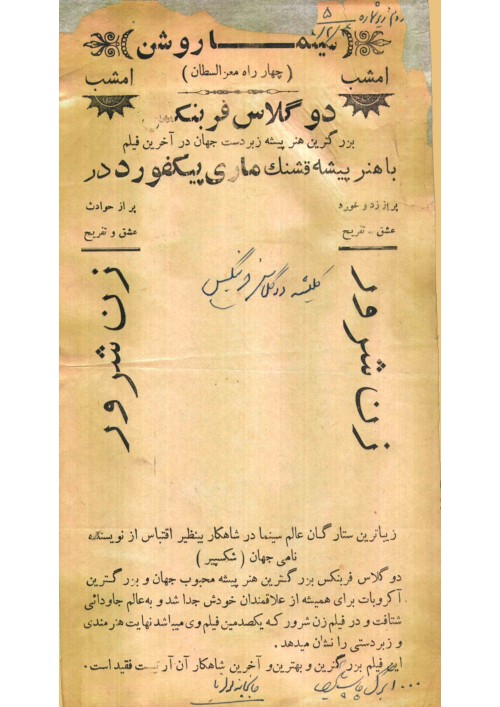 ۵
سینمــا روشن
امشب
(چهار راه معزالسطان)
امشب
دو گلاس فربنک
بزرگترین هنر پیشه زبردست جهان در آخرین فیلم
با هنر پیشه قشنك ماری پیکفورد در
پر از زد و خورد
عشق - تفریح
پر از حوادث
عشق و تفریح
زن شرور
زن شرور
کلیشه دوگلاس فربنکس
زیباترین ستارگان عالم سینما در شاهکار بینظیر اقتباس از نویسنده
نامی جهان ( شکسپیر )
دو گلاس فربنکس بزرگترین هنر پیشه محبوب جهان و بزرگترین
آکروبات برای همیشه از علاقمندان خودش جدا شد و به عالم جاودائی
شتافت و در فیلم زن شرور که یکصدمین فیلم وی میباشد نهایت هنرمندی
و زبردستی را نشان میدهد .
این فیلم بزرگترین و بهترین و آخرین شاهکار آن آرتیست فقید است .
۱۰۰۰ برگ